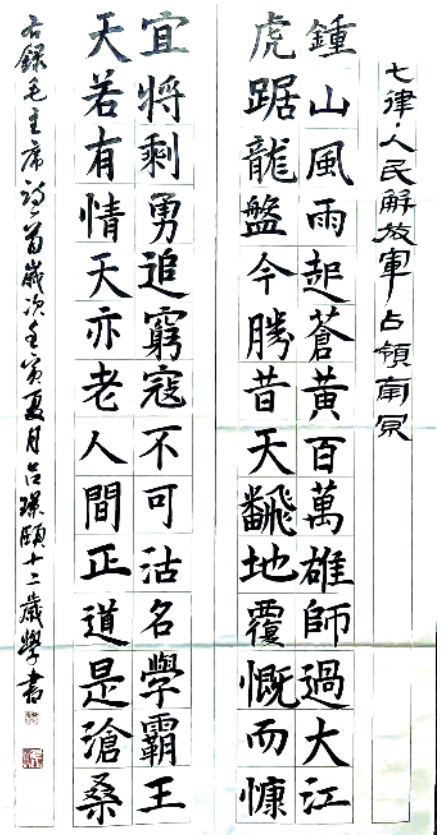 七律·人民解放軍占領南京
鍾山風雨起蒼黃百萬雄師過大江
虎踞龍盤今勝昔天飜地覆慨而慷
宜將剩勇追窮寇不可沽名學霸王
天若有情天亦老人間正道是滄桑
右錄毛主席詩一首歲次壬寅夏月呂璟頤十二歲學書